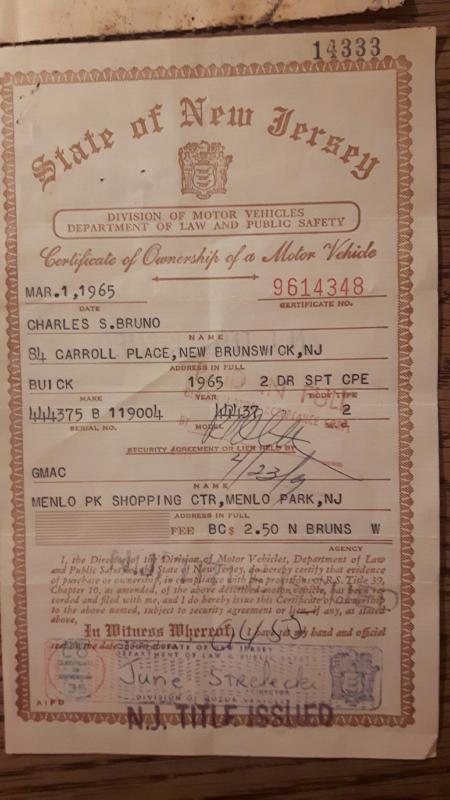 14333
State of New Jersey
DIVISION OF MOTOR VEHICLES
DEPARTMENT OF LAW AND PUBLIC SAFETY
Certificate of Ownership of a Motor Vehicle
MAR.1,1965 9614348
DATE CERTIFICATE NO.
CHARLES S.BRUNO
NAME
84 CARROLL PLACE,NEW BRUNSWICK,NJ
ADDRESS IN FULL
BUICK 1965 2 DR SPT CPE
MAKE YEAR BODY TYPE
PAID IN FULL
444375 B 119004 44437 2
SERIAL NO. MODEL
SECURITY AGREEMENT OR LIEN HELD BY
GMAC
NAME
MENLO PK SHOPPING CTR,MENLO PARK,NJ
ADDRESS IN FULL
FEE BC$ 2.50 N BRUNS W
AGENCY
I, the Director of the Division of Motor Vehicles, Department of Law
and Public Safety, State of New Jersey, do hereby certify that evidence
of purchase or ownership, in compliance with the provisions of R.S. Title 39,
Chapter 10, as amended, of the above described motor vehicle, has been re-
corded and filed with me, and I do hereby issue this Certificate of Ownership
to the above named, subject to security agreement or lien, if any, as stated
above,
In Witness Whereof, I have set my hand and official
seal on the date
STATE OF NEW JERSEY
DEPARTMENT OF LAW & PUBLIC
June Strelecki
DIRECTOR
DIVISION OF MOTOR VEHICLES
AIPD
N.J. TITLE ISSUED